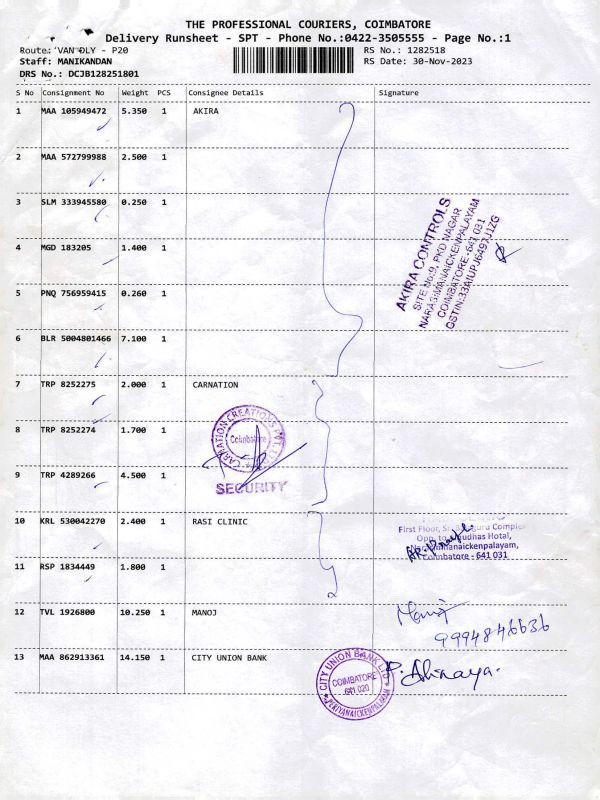 THE PROFESSIONAL COURIERS, COIMBATORE
Delivery Runsheet - SPT - Phone No.:0422-3505555 - Page No.:1
Route: VAN DLY - P20 RS No.: 1282518
Staff: MANIKANDAN RS Date: 30-Nov-2023
DRS No.: DCJB128251801
S No Consignment No Weight PCS Consignee Details Signature
1 MAA 105949472 5.350 1 AKIRA
2 MAA 572799988 2.500 1
3 SLM 333945580 0.250 1
4 MGD 183205 1.400 1
5 PNQ 756959415 0.260 1
6 BLR 5004801466 7.100 1
AKIRA CONTROLS
SITE No:9, PKD NAGAR
NARASIMANAICKENPALAYAM
COIMBATORE - 641 031
GSTIN:33AIUPJ6497J1ZG
7 TRP 8252275 2.000 1 CARNATION
8 TRP 8252274 1.700 1
CARNATION CREATIONS PVT. LTD
Coimbatore
9 TRP 4289266 4.500 1
SECURITY
10 KRL 530042270 2.400 1 RASI CLINIC
First Floor, Complex
Opp. to Hotal,
Narasimhanaickenpalayam,
Coimbatore - 641 031
11 RSP 1834449 1.800 1
12 TVL 1926800 10.250 1 MANOJ
Manoj
9994846636
13 MAA 862913361 14.150 1 CITY UNION BANK
CITY UNION BANK LTD
COIMBATORE
641 020
P. Abinaya.